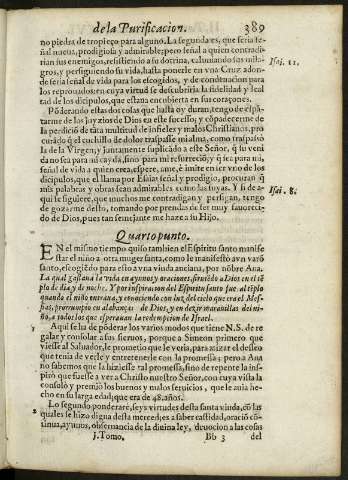 de la Purificacion. 389
no piedra de tropieço para alguno. La segunda es, que seria se-
ñal nueua, prodigiosa y admirable; pero señal a quien contradi-
rian sus enemigos, resistiendo a su dotrina, calumniando sus mila-
Isai. 11.
gros, y persiguiendo su vida, hasta ponerle en vna Cruz adon-
de seria señal de vida para los escogidos, y de condenacion para
los reprouados: en cuya virtud se descubriria la fidelidad y leal
tad de los dicipulos, que estaua encubierta en sus coraçones.
Pōderando estas dos cosas que hasta oy duran, tengo de espā-
tarme de los juyzios de Dios en este sucesso; y cōpadecerme de
la perdiciō de tāta multitud de infieles y malos Christianos, pro
curādo q̄ el cuchillo de dolor traspasse mi alma, como traspasò
la de la Virgen; y juntamente suplicādo a este Señor, q̄ su veni
da no sea para mi cayda, sino para mi resurreciō, y q̄ sea para mi,
señal de vida a quien crea, espere, ame, e imite en ser vno de los
dicipulos, que el llama por Esaias señal y prodigio, procuran q̄
Isai. 8.
mis palabras y obras sean admirables como las suyas. Y si de a-
qui se siguiere, que muchos me contradigan y persigan, tengo
de gozarme dello, tomando por prenda de ser muy fauoreci-
do de Dios, pues tan semejante me haze a su Hijo.
Quarto punto.
EN el mismo tiempo quiso tambien el Espiritu santo manife
star el niño a otra muger santa, como le manifestò a vn varō
santo, escogiēdo para esto a vna viuda anciana, por nōbre Ana.
La qual gastaua la vida en ayunos y oraciones, siruiēdo a Dios en el tē
plo de dia y de noche. Y por inspiracion del Espiritu santo fue al tēplo
quando el niño entraua, y conociendo con luz del cielo que era el Mes-
sias, prorrumpio en alabanças de Dios, y en dezir marauillas del ni-
ño, a todos los que esperauan la redempcion de Israel.
Aqui se ha de pōderar los varios modos que tiene N.S. de re
galar y consolar a sus sieruos, porque a Simeon primero que
viesse al Saluador, le prometio que le veria, para mitar el desseo
que tenia de verle y entretenerle con la promessa; pero a Ana
no sabemos que la hiziesse tal promessa, sino de repente la inspi-
rò que fuesse a ver a Christo nuestro Señor, con cuya vista la
consolò y premiò los buenos y malos seruicios, que le auia he-
cho en su larga edad, que era de 48. años.
Lo segundo ponderarè, seys virtudes desta santa viuda, cō las
quales se hizo digna desta merced; es a saber castidad, oraciō cō-
tinua, ayunos, obseruancia de la diuina ley, deuocion a las cosas
j. Tomo. Bb 3 del